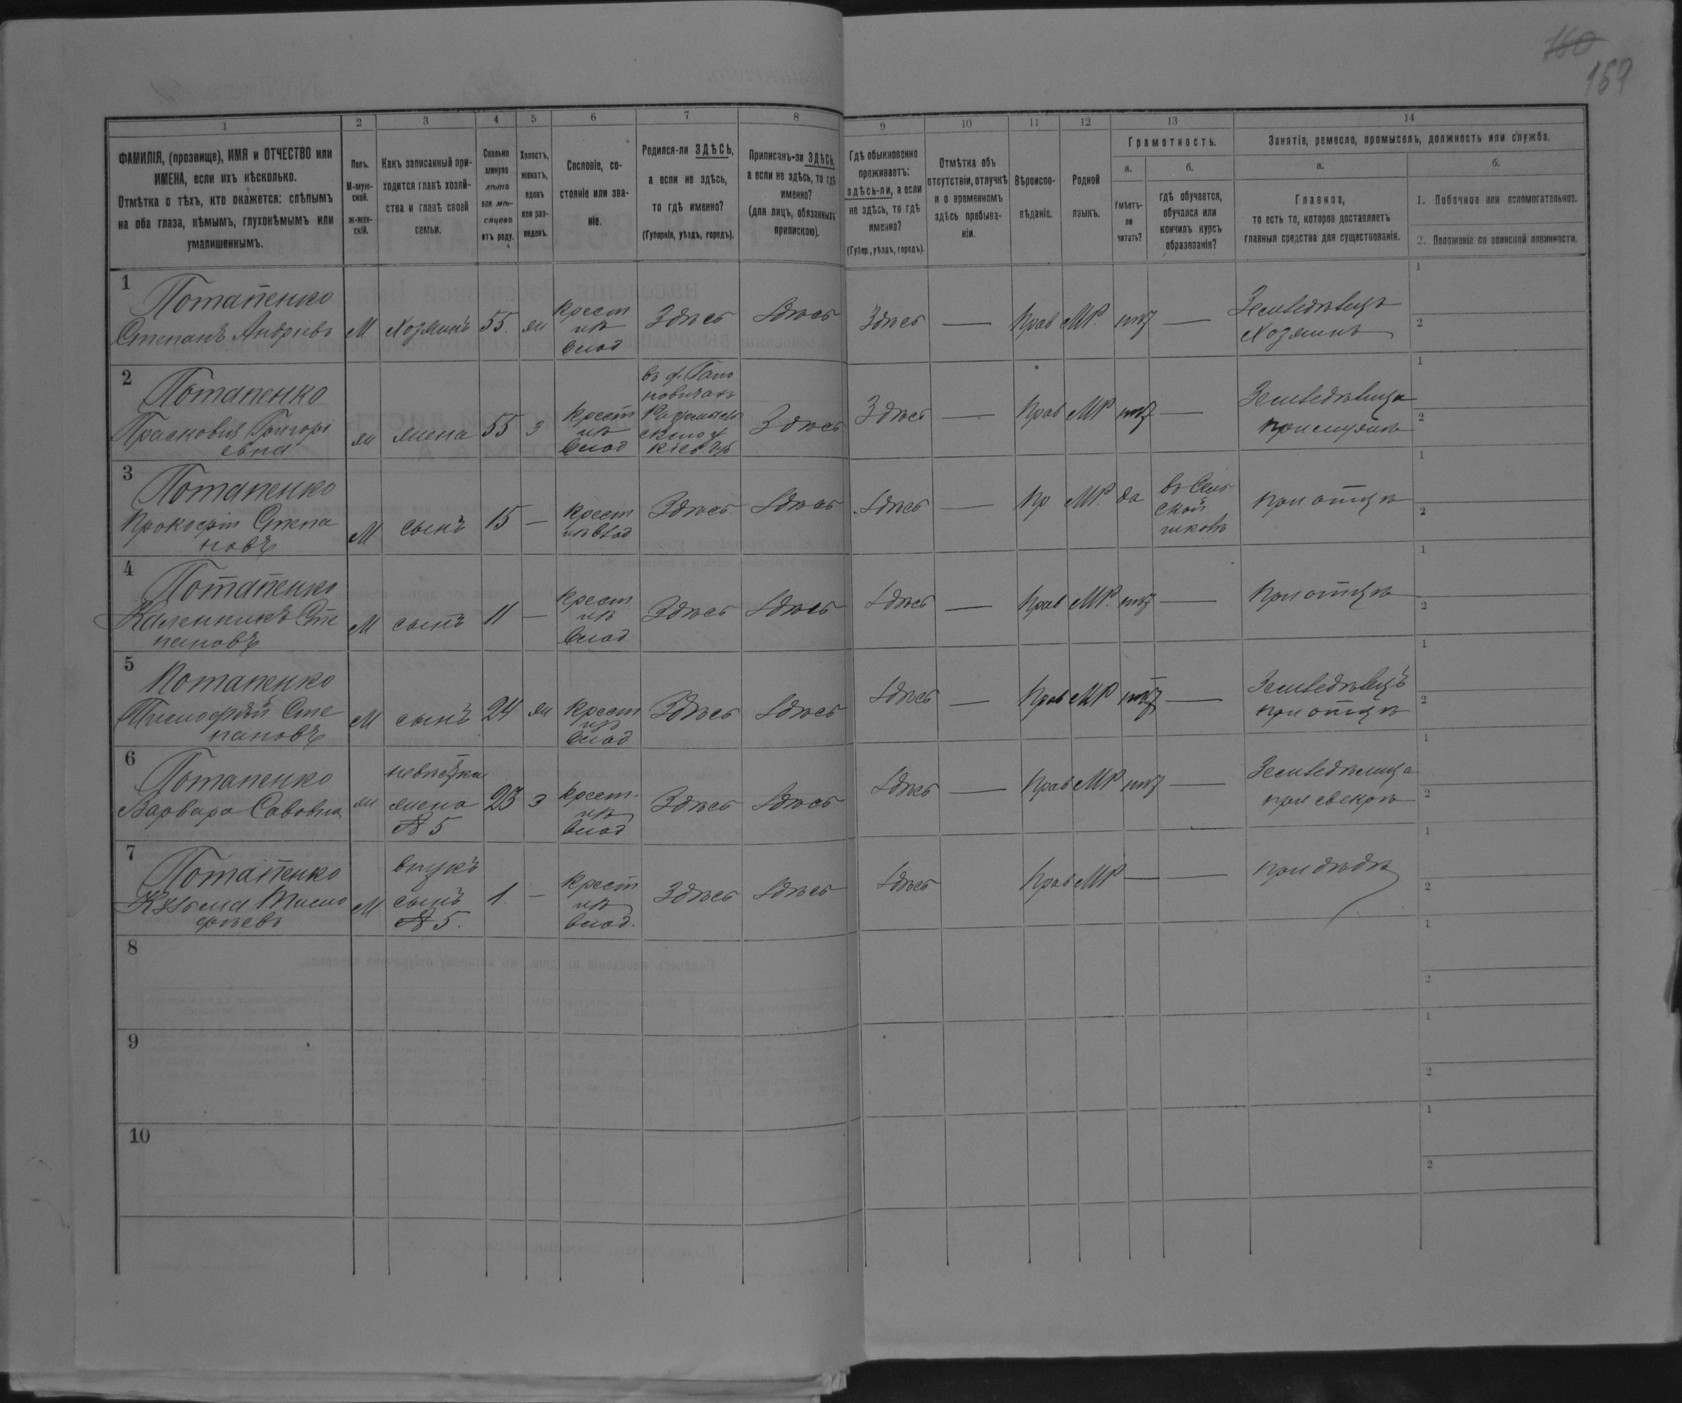 160
169
1
2
3
4
5
6
7
8
9
10
11
12
13
14
ФАМИЛІЯ, (прозвище), ИМЯ и ОТЧЕСТВО или
ИМЕНА, если ихъ нѣсколько.
Отмѣтка о тѣхъ, кто окажется: слѣпымъ
на оба глаза, нѣмымъ, глухонѣмымъ или
умалишеннымъ.
Полъ.
М-муж-
ской.
Ж-жен-
скій.
Какъ записанный при-
ходится главѣ хозяй-
ства и главѣ своей
семьи.
Сколько
минуло
лѣтъ
или мѣ-
сяцевъ
отъ роду.
Холостъ,
женатъ,
вдовъ
или раз-
веденъ.
Сословіе, со-
стояніе или зва-
ніе.
Родился-ли ЗДѢСЬ,
а если не здѣсь,
то гдѣ именно?
(Губернія, уѣздъ, городъ).
Приписанъ-ли ЗДѢСЬ,
а если не здѣсь, то гдѣ
именно?
(для лицъ, обязанныхъ
припискою).
Гдѣ обыкновенно
проживаетъ:
здѣсь-ли, а если
не здѣсь, то гдѣ
именно?
(Губер., уѣздъ, городъ).
Отмѣтка объ
отсутствіи, отлучкѣ
и о временномъ
здѣсь пребыва-
ніи.
Вѣроиспо-
вѣданіе.
Родной
языкъ.
Грамотность.
а.
Умѣетъ-
ли
читать?
б.
гдѣ обучается,
обучался или
кончилъ курсъ
образованія?
Занятія, ремесло, промыселъ, должность или служба.
а.
Главное,
то есть то, которое доставляетъ
главныя средства для существованія.
б.
1. Побочное или вспомогательное.
2. Положеніе по воинской повинности.
1
Потапенко
Степанъ Андріевъ
М
хозяинъ
55
жн
крест
из
влад
Здѣсь
Здѣсь
Здѣсь
—
Прав
МР.
нѣт
—
Земледѣлецъ
хозяинъ
1
2
2
Потапенко
Прасковія Григорі
евна
жн
жена
55
з
крест
из
влад
Кіев губ
Здѣсь
Здѣсь
—
Прав
МР
нѣт
—
1
2
3
Потапенко
Прокофій Степа
новъ
М
сынъ
15
—
крест
из влад
Здѣсь
Здѣсь
Здѣсь
—
Пр
МР.
да
в Сель
ской
школѣ
при отцѣ
1
2
4
Потапенко
Каленникъ Сте
пановъ
М
сынъ
11
—
крест
из
влад
Здѣсь
Здѣсь
Здѣсь
—
Прав
МР.
нѣт
—
при отцѣ
1
2
5
Потапенко
Тимофѣй Сте
пановъ
М
сынъ
24
жн
крест
из
влад
Здѣсь
Здѣсь
Здѣсь
—
Прав
МР
нѣт
—
Земледѣлецъ
при отцѣ
1
2
6
Потапенко
Варвара Саввовна
жн
невѣстка
жена
№ 5
23
з
крест.
из
влад
Здѣсь
Здѣсь
Здѣсь
—
Прав
МР
нѣт
—
при свекрѣ
1
2
7
Потапенко
Кузьма Тимо
фѣевъ
М
внукъ
сынъ
№ 5.
1
—
крест
из
влад.
Здѣсь
Здѣсь
Здѣсь
Прав
МР
—
—
при дѣдѣ
1
2
8
1
2
9
1
2
10
1
2